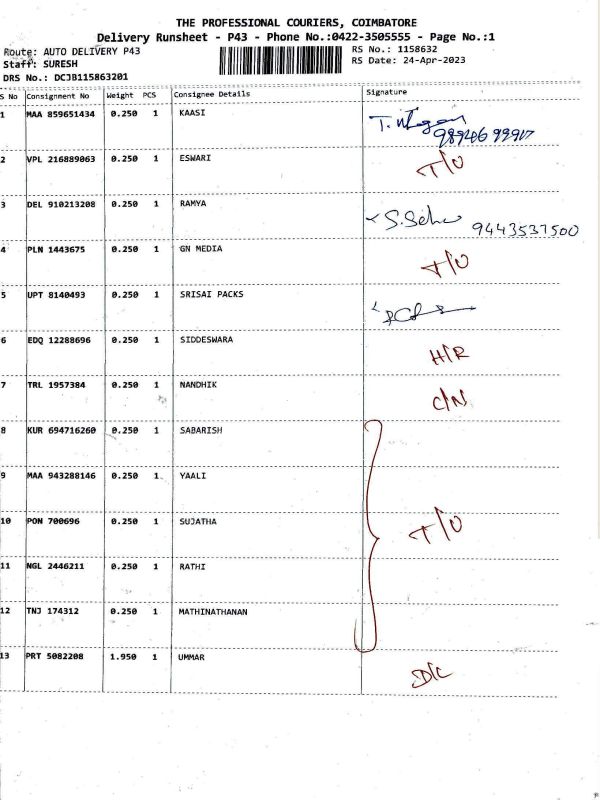 THE PROFESSIONAL COURIERS, COIMBATORE
Delivery Runsheet - P43 - Phone No.:0422-3505555 - Page No.:1
Route: AUTO DELIVERY P43 RS No.: 1158632
Staff: SURESH RS Date: 24-Apr-2023
DRS No.: DCJB115863201
S No Consignment No Weight PCS Consignee Details Signature
1 MAA 859651434 0.250 1 KAASI
2 VPL 216889063 0.250 1 ESWARI T/O
3 DEL 910213208 0.250 1 RAMYA 9443537500
4 PLN 1443675 0.250 1 GN MEDIA T/O
5 UPT 8140493 0.250 1 SRISAI PACKS
6 EDQ 12288696 0.250 1 SIDDESWARA H/R
7 TRL 1957384 0.250 1 NANDHIK C/N
8 KUR 694716260 0.250 1 SABARISH
9 MAA 943288146 0.250 1 YAALI
10 PON 700696 0.250 1 SUJATHA T/O
11 NGL 2446211 0.250 1 RATHI
12 TNJ 174312 0.250 1 MATHINATHANAN
13 PRT 5082208 1.950 1 UMMAR D/C